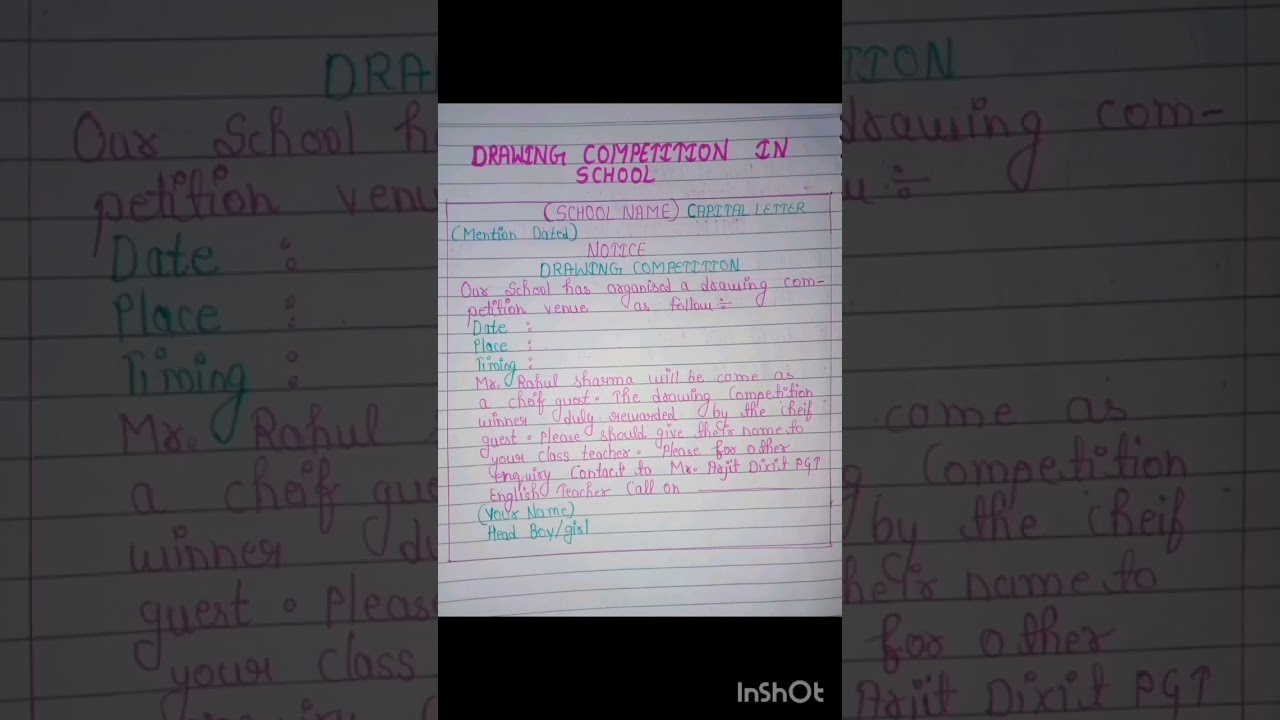 DRAWING COMPETITION IN
SCHOOL
(SCHOOL NAME) CAPITAL LETTER
(Mention Dated)
NOTICE
DRAWING COMPETITION
Our School has organised a drawing com-
petition venue as follow :-
Date :
Place :
Timing :
Mr. Rahul sharma will be come as
a cheif guest. The drawing Competition
winner duly rewarded by the cheif
guest. Please should give their name to
your class teacher. Please for other
enquiry Contact to Mr. Arjit Dixit PGT
English Teacher Call on
(Your Name)
Head Boy/girl
InShOt